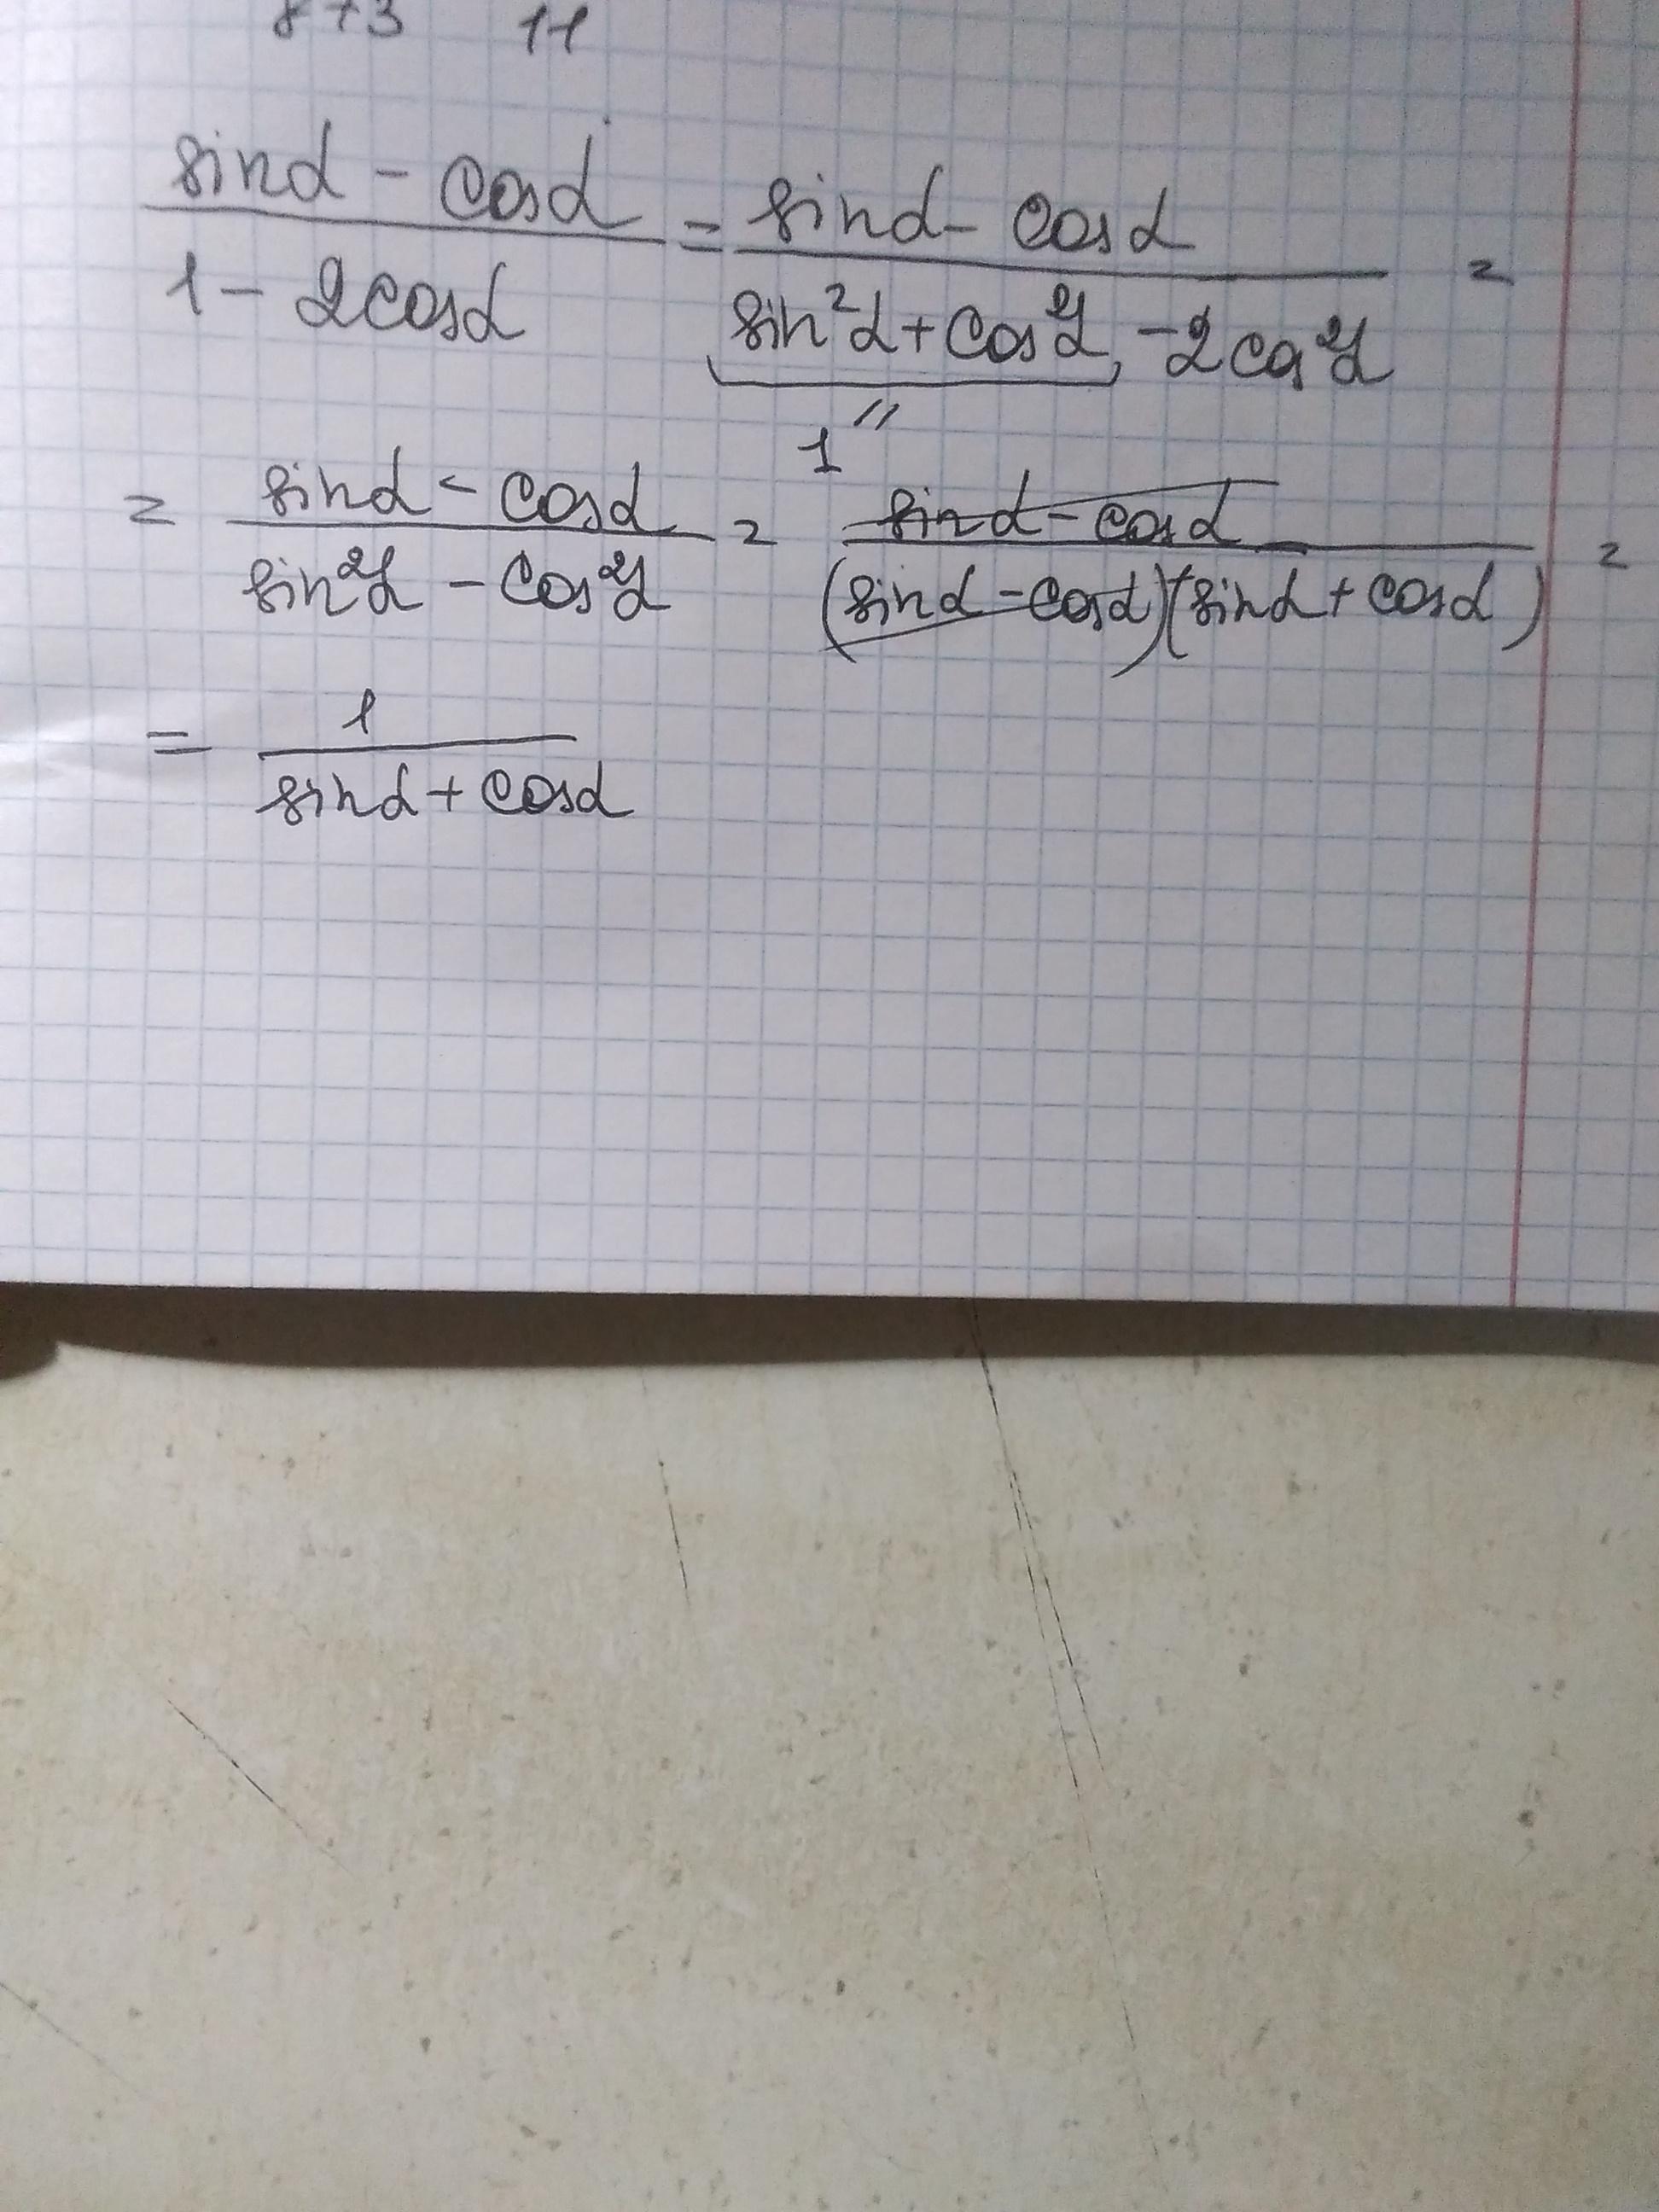 8+3 11
sinα - cosα / 1 - 2cosα = sinα - cosα / sin²α + cos²α - 2cos²α =
1
= sinα - cosα / sin²α - cos²α = sinα - cosα / (sinα - cosα)(sinα + cosα) =
= 1 / sinα + cosα